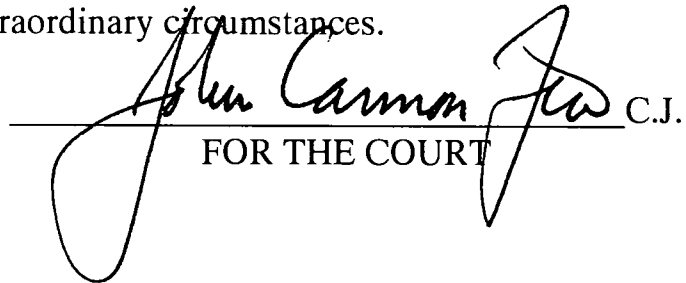 raordinary circumstances.
John Cannon Few C.J.
FOR THE COURT